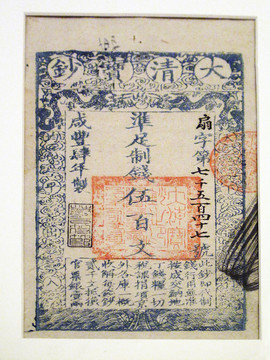 大清寶鈔
扇字第七千五百四十七號
準足制錢伍百文
咸豐肆年製
此鈔即代制
錢行用並准
按成交納地
丁錢糧一切
稅課捐項京
外各庫一概
收解每錢鈔
貳千文抵換
官票銀壹兩